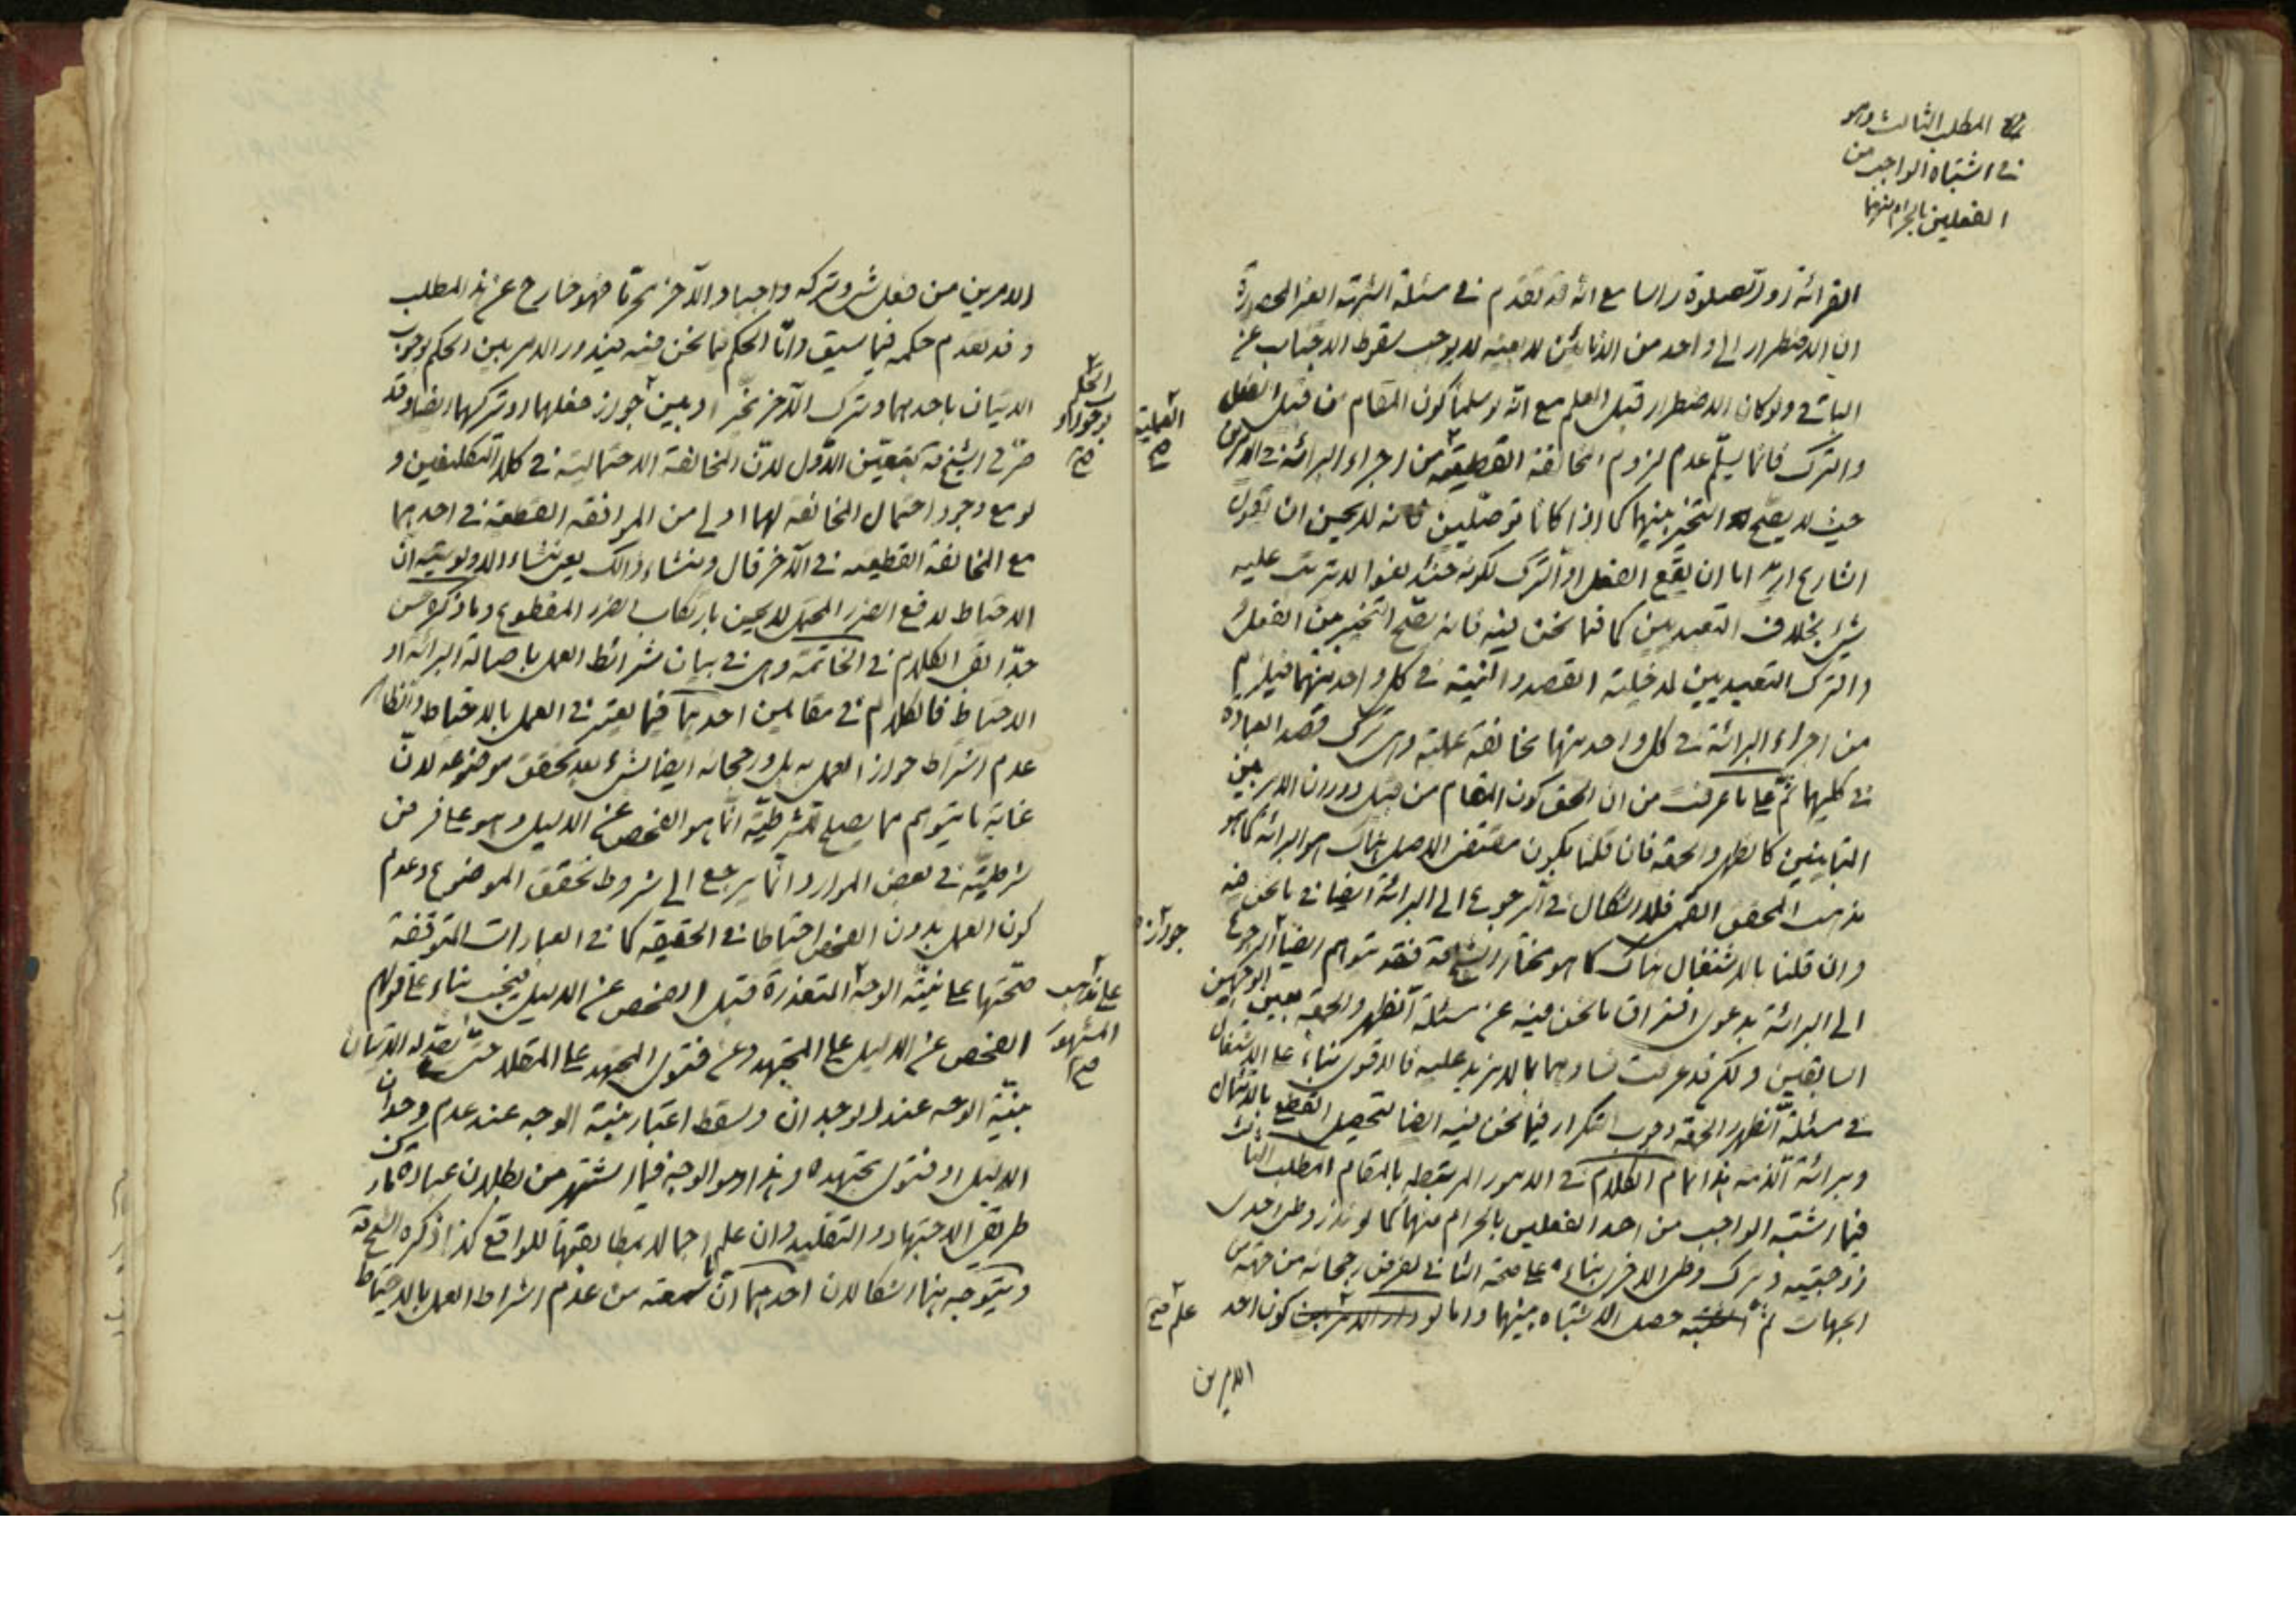 المطلب الثالث وهو
في اشتباه الواجب من
الفعلين بالحرام منهما
القرائة او الصلوة راسا مع انه قد تقدم في مسئلة الشبهة الغير المحصورة
ان الاضطرار الى واحد من الانائين لا بعينه لا يوجب سقوط الاجتناب عن
الباقي ولو كان الاضطرار قبل العلم مع انه لو سلمنا كون المقام من قبيل الفعل
والترك فانما يسلم عدم لزوم المخالفة القطعية من اجراء البرائة في الامرين
العملية
صح
حيث لا يصح التخيير بينهما كما اذا كانا توصليين فانه لا يحسن ان يقول
الشارع اما ان يقع الفعل او الترك لكونه حينئذ لغوا لا يترتب عليه
شيء بخلاف التعبديين كما فيما نحن فيه فانه يصح التخيير بين الفعل
والترك التعبديين لمدخلية القصد والنية في كل واحد منهما فيلزم
من اجراء البرائة في كل واحد منهما مخالفة عملية وهي ترك قصد العبادة
في كليهما ثم على ما عرفت من ان الحق كون المقام من قبيل دوران الامر بين
المتباينين كالظهر والجمعة فان قلنا بكون مقتضى الاصل هناك هو البرائة كما هو
مذهب المحقق القمي فلا اشكال في الرجوع الى البرائة ايضا في ما نحن فيه
وان قلنا بالاشتغال هناك كما هو مختار الشيخ فقد يتوهم ايضا الرجوع
جواز
الى البرائة بدعوى افتراق ما نحن فيه عن مسئلة الظهر والجمعة بعين الوجهين
السابقين ولكن قد عرفت فسادهما بما لا مزيد عليه فالاقوى بناء على الاشتغال
في مسئلة الظهر والجمعة وجوب التكرار فيما نحن فيه ايضا لتحصيل القطع بالامتثال
وبرائة الذمة هذا تمام الكلام في الامور المرتبطة بالمقام المطلب الثالث
فيما اشتبه الواجب من احد الفعلين بالحرام منهما كما لو نذر وطى احدى
زوجتيه وترك وطى الاخرى بناء على صحة الثاني لفرض رجحانه من جهة من
الجهات ثم حصل الاشتباه بينهما واما لو كون احد
علم صح
الامرين
الامرين من فعل شيء وتركه واجبا والآخر محرما فهو خارج عن هذا المطلب
وقد تقدم حكمه فيما سبق واما الحكم فيما نحن فيه فيدور الامر بين الحكم بوجوب
الاتيان باحدهما وترك الآخر مخيرا وبين جواز فعلهما وتركهما ايضا وقد
الحكم
صح
صرح الشيخ بتعيين الاول لان المخالفة الاحتمالية في كلا التكليفين و
لو مع وجود احتمال المخالفة لهما اولى من الموافقة القطعية في احدهما
مع المخالفة القطعية في الآخر قال ومنشاء ذلك يعني منشاء الاولوية ان
الاحتياط لدفع الضرر المحتمل لا يحسن بارتكاب الضرر المقطوع وما ذكره حسن
جدا بقي الكلام في الخاتمة وهي في بيان شرائط العمل باصالة البرائة او
الاحتياط فالكلام في مقامين احدهما فيما يعتبر في العمل بالاحتياط والظاهر
عدم اشتراط جواز العمل به بل ورجحانه ايضا بشيء بعد تحقق موضوعه لان
غاية ما يتوهم مما يصلح للشرطية انما هو الفحص عن الدليل وهو على فرض
شرطيته في بعض الموارد انما يرجع الى شروط تحقق الموضوع وعدم
كون العمل بدون الفحص احتياطا في الحقيقة كما في العبادات المتوقفة
صحتها على نية الوجه المتعذرة قبل الفحص عن الدليل فيجب بناء على قولهم
على مذهب
المشهور
صح
الفحص عن الدليل على المجتهد وعن فتوى المجتهد على المقلد حتى الاتيان
بنية الوجه عند الوجدان وسقط اعتبار نية الوجه عند عدم وجدان
الدليل او فتوى مجتهده وهذا هو الوجه فيما اشتهر من بطلان عبادة تارك
طريقي الاجتهاد والتقليد وان علم اجمالا بمطابقتها للواقع كذا ذكره الشيخ
ويتوجه هنا اشكالان احدهما ان ما سمعته من عدم اشتراط العمل بالاحتياط